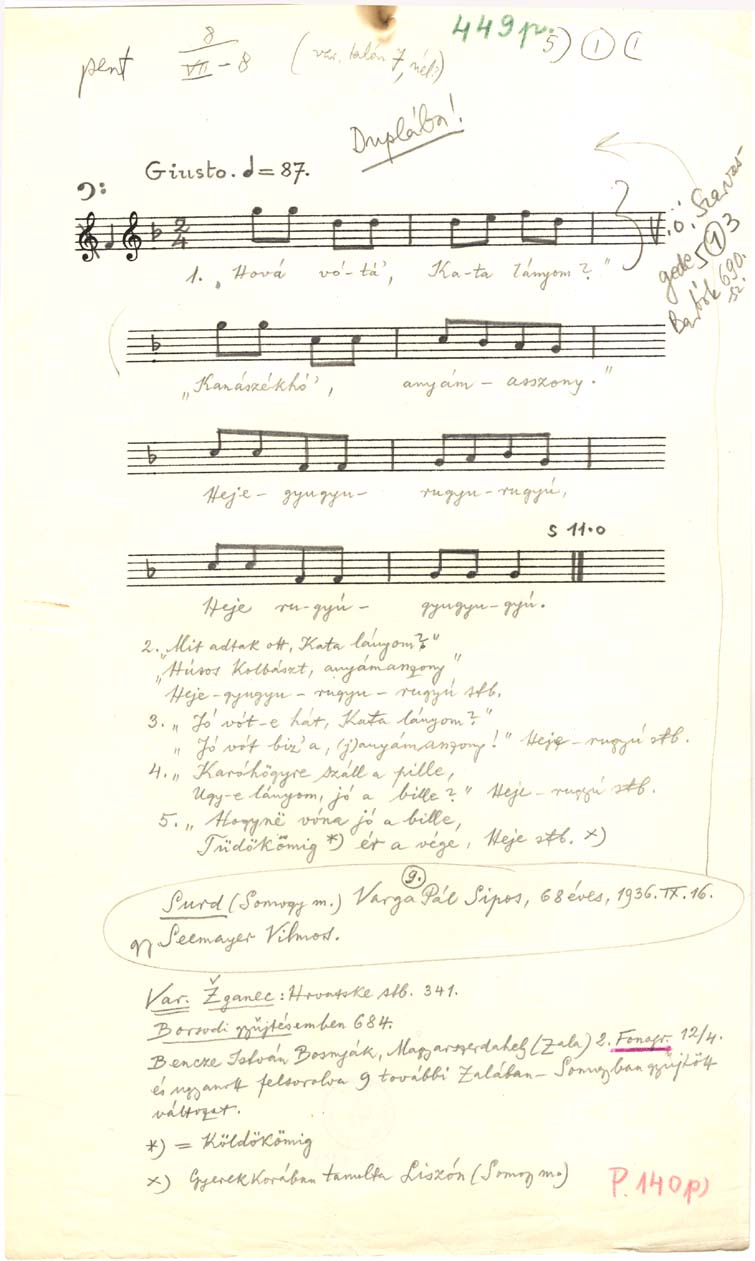 449p. 5) 1 (1
pent 8 / VII – 8 (var. talán 7, nél?)
Duplába!
Giusto. = 87.
2 4
V.ö. Szarvas-
gede 5 1 3
Bartók 690.
sz.
1. „Hová vó-tá', Ka-ta lányom?"
„Kanászékhó', anyám – asszony."
Heje – gyugyu – rugyu-rugyú,
S 11.0
Heje ru-gyú – gyugyu-gyú.
2. „Mit adtak ott, Kata lányom?"
„Húsos Kolbászt, anyámasszony"
Heje-gyugyu – rugyu – rugyú stb.
3. „Jó vót-e hát, Kata lányom?"
„Jó vót biz'a, (j)anyámasszony!" Heje – rugyú stb.
4. „Karóhögyre száll a pille,
Ugy-e lányom, jó a bille?" Heje – rugyú stb.
5. „Hogynë vóna jó a bille,
Tüdőkömig *) ér a vége, Heje stb. x)
9.
Surd (Somogy m.) Varga Pál Sipos, 68 éves, 1936. IX. 16.
gy Seemayer Vilmos.
Var. Žganec: Hrvatske stb. 341.
Borsodi gyűjtésemben 684.
Bencze István Bosnyák, Magyarszerdahely (Zala) 2. Fonogr. 12/4.
és ugyanott felsorolva 9 további Zalában – Somogyban gyűjtött
változat.
*) = Köldökömig
x) Gyerekkorában tanulta Liszón (Somogy m.)
P. 140p)